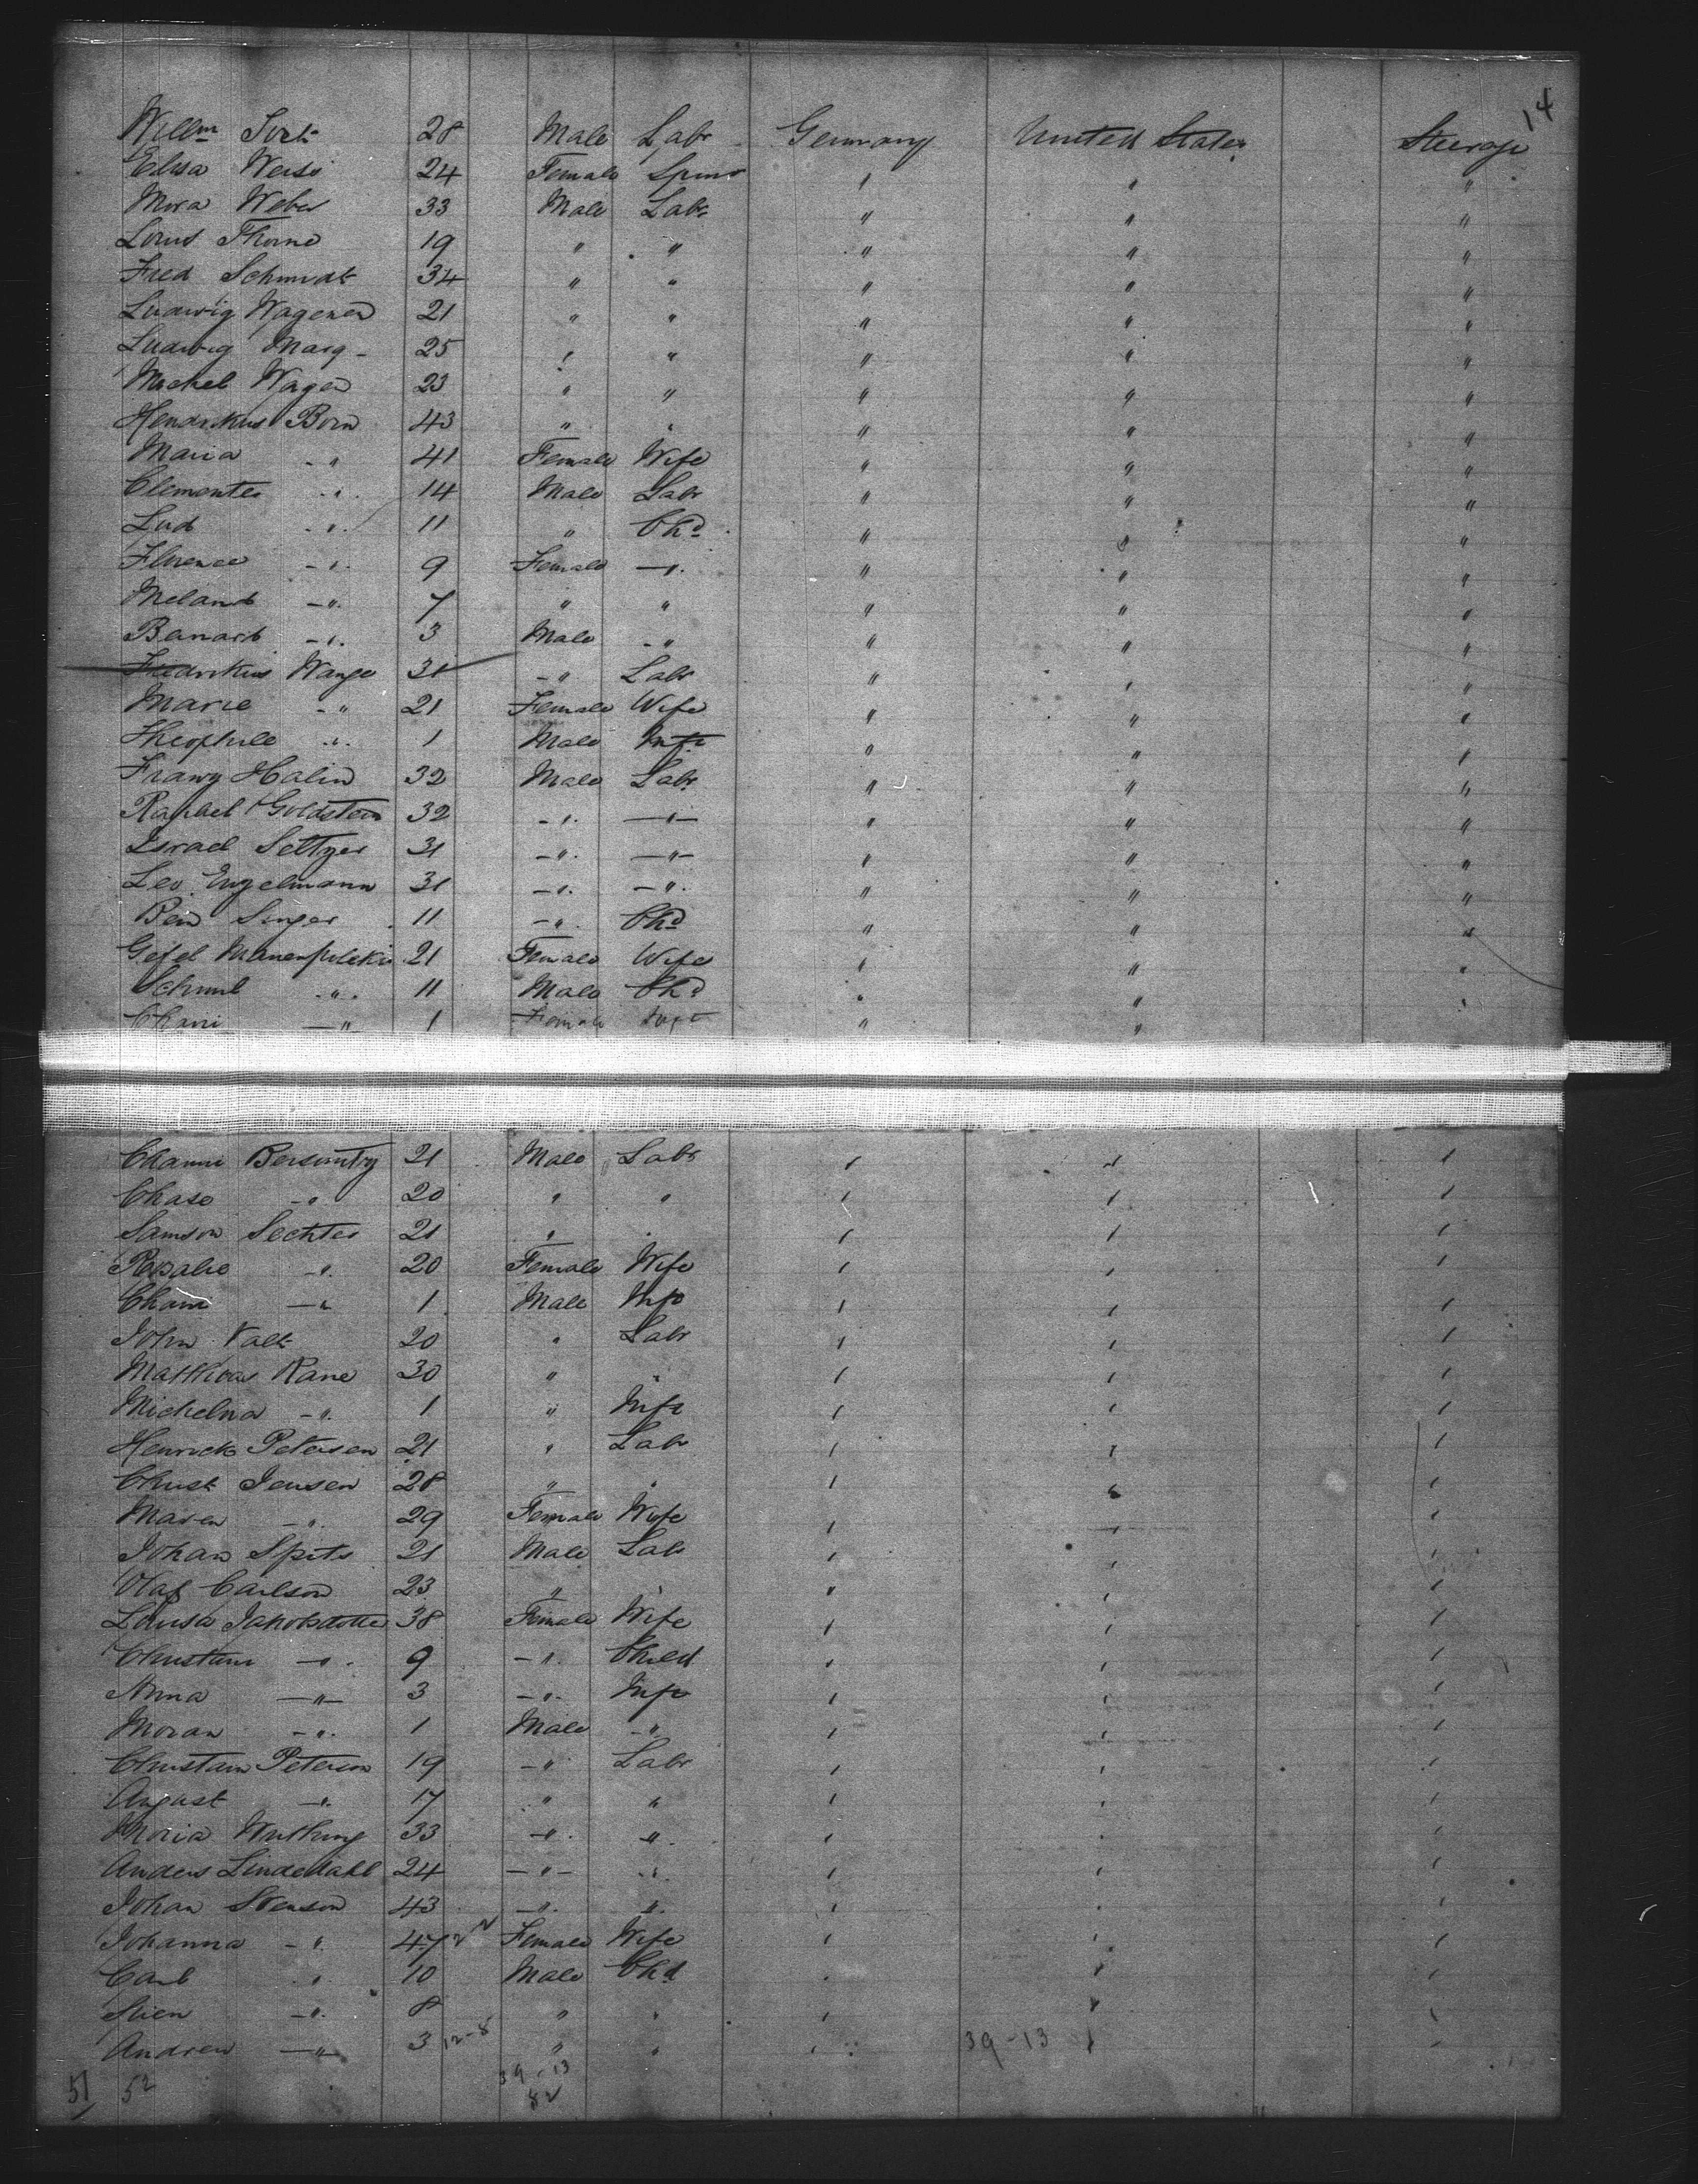 14
Willm 28 Male Labr Germany United States Steerage
Elisa Weisi 24 Female Spinr " " "
Mora Weber 33 Male Labr " " "
Louis Thorne 19 " " " " "
Fred Schmidt 34 " " " " "
Ludwig Wagener 21 " " " " "
Ludwig Marq - 25 " " " " "
Michel Wagen 23 " " " " "
Hendrikus Born 43 " " " " "
Maria -" 41 Female Wife " " "
Clementes -" 14 Male Labr " " "
Lud -" 11 " Chd " " "
Florence -" 9 Female -" " " "
Meland -" 7 " " " " "
Banard -" 3 Male -" " " "
Fredrikus Wange 31 -" Labr " " "
Marie -" 21 Female Wife " " "
Theophile -" 1 Male Inft " " "
Franz Halin 32 Male Labr " " "
Raphael Goldstein 32 -" -"- " " "
Israel Seltzer 31 -" -"- " " "
Leo Engelmann 31 -" -" " " "
Ben Singer 11 -" Chd " " "
Gefel 21 Female Wife " " "
Schmul -" 11 Male Chd " " "
Chani -" 1 Female Inft " "
Channi 21 Male Labr " " "
Chase -" 20 " " " " "
Samson Sechter 21 " " " " "
Rosalie -" 20 Female Wife " " "
Chani -" 1 Male Inft " " "
John Valt 20 " Labr " " "
Matthias Kane 30 " " " " "
Michelna -" 1 " Inft " " "
Henrick Petersen 21 " Labr " " "
Christ Jensen 28 " " " " "
Maren -" 29 Female Wife " " "
Johan Spits 21 Male Labr " " "
Olaf Carlson 23 " " " " "
Louisa Jakobsdotter 38 Female Wife " " "
Christian -" 9 -" Child " " "
Anna -"- 3 -" Inft " " "
Moran -" 1 Male -" " " "
Christian Peterson 19 -" Labr " " "
August -" 17 " " " " "
Moria 33 -" " " " "
Anders Lindedahl 24 -"- " " " "
Johan Svenson 43 -" " " " "
Johanna -" 47 Female Wife " " "
Carl " 10 Male Chd " " "
Sven -" 8 " " " " "
Andrew -"- 3 12-8 " " " 39-13 " "
51 52 39-13
52